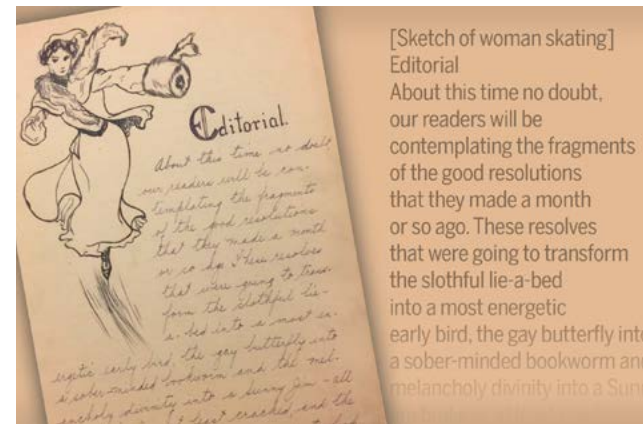 Editorial.
About this time no doubt
our readers will be con-
templating the fragments
of the good resolutions
that they made a month
or so ago. These resolves
that were going to trans-
form the slothful lie-
a-bed into a most en-
ergetic early bird, the gay butterfly into
a sober-minded bookworm and the mel-
ancholy divinity into a Sunny Jim - all
least cracked, and the
[Sketch of woman skating]
Editorial
About this time no doubt,
our readers will be
contemplating the fragments
of the good resolutions
that they made a month
or so ago. These resolves
that were going to transform
the slothful lie-a-bed
into a most energetic
early bird, the gay butterfly into
a sober-minded bookworm and
melancholy divinity into a Sun